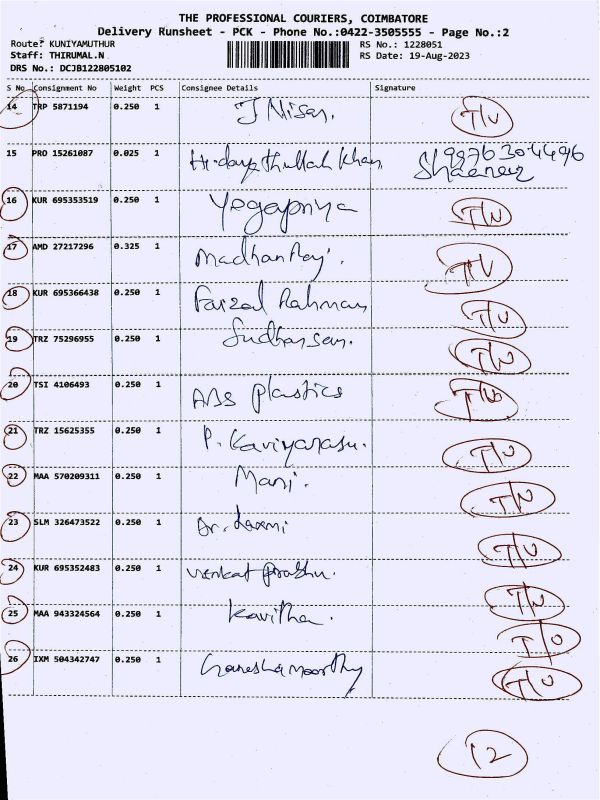 THE PROFESSIONAL COURIERS, COIMBATORE
Delivery Runsheet - PCK - Phone No.:0422-3505555 - Page No.:2
Route: KUNIYAMUTHUR RS No.: 1228051
Staff: THIRUMAL.N RS Date: 19-Aug-2023
DRS No.: DCJB122805102
S No Consignment No Weight PCS Consignee Details Signature
14 TRP 5871194 0.250 1 J Nisar. T/U
15 PRO 15261087 0.025 1 Hidayathullah Khan 9976304496
16 KUR 695353519 0.250 1 Yogapriya T/U
17 AMD 27217296 0.325 1 MadhanRaj. T/U
18 KUR 695366438 0.250 1 Faizal Rahman T/U
19 TRZ 75296955 0.250 1 Sudharsan. T/U
20 TSI 4106493 0.250 1 ABS plastics T/U
21 TRZ 15625355 0.250 1 P. Kaviyarasu. T/U
22 MAA 570209311 0.250 1 Mani. T/U
23 SLM 326473522 0.250 1 Dr. Laxmi T/U
24 KUR 695352483 0.250 1 venkat prabhu. T/U
25 MAA 943324564 0.250 1 Kavitha. T/U
26 IXM 504342747 0.250 1 Ganeshamoorthy T/U
12